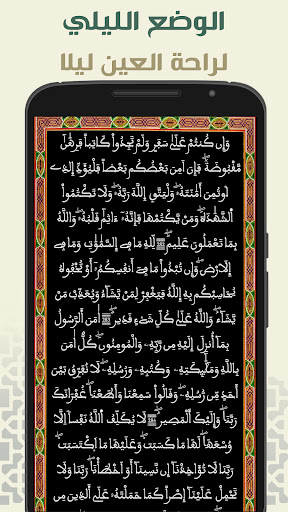 الوضع الليلي
لراحة العين ليلا
وَإِن كُنتُمْ عَلَىٰ سَفَرٍ وَلَمْ تَجِدُواْ كَاتِباً فَرِهَٰنٞ
مَّقْبُوضَةٞۖ فَإِنَ اَمِنَ بَعْضُكُم بَعْضاً فَلْيُؤَدِّ اِلذِے
اِ۟وتُمِنَ أَمَٰنَتَهُۥۖ وَلْيَتَّقِ اِللَّهَ رَبَّهُۥۖ وَلَا تَكْتُمُواْ
اُ۬لشَّهَٰدَةَۖ وَمَنْ يَّكْتُمْهَا فَإِنَّهُۥٓ ءَاثِمٞ قَلْبُهُۥۖ وَاللَّهُ
بِمَا تَعْمَلُونَ عَلِيمٞۖ لِّلهِ مَا فِے اِ۬لسَّمَٰوَٰتِ وَمَا فِے
اِ۬لَارْضِۖ وَإِن تُبْدُواْ مَا فِےٓ أَنفُسِكُمُۥٓ أَوْ تُخْفُوهُ
يُحَاسِبْكُم بِهِ اِللَّهُۖ فَيَغْفِرْ لِمَنْ يَّشَآءُ وَيُعَذِّبْ مَنْ
يَّشَآءُۖ وَاللَّهُ عَلَىٰ كُلِّ شَےْءٖ قَدِيرٌۖ ءَامَنَ اَ۬لرَّسُولُ
بِمَآ أُنزِلَ إِلَيْهِ مِن رَّبِّهِۦ وَالْمُومِنُونَۖ كُلٌّ اٰمَنَ
بِاللَّهِ وَمَلَٰٓئِكَتِهِۦ وَكُتُبِهِۦ وَرُسُلِهِۦۖ لَا نُفَرِّقُ بَيْنَ
أَحَدٖ مِّن رُّسُلِهِۦۖ وَقَالُواْ سَمِعْنَا وَأَطَعْنَاۖ غُفْرَانَكَ
رَبَّنَا وَإِلَيْكَ اَ۬لْمَصِيرُۖ لَا يُكَلِّفُ اُ۬للَّهُ نَفْساً اِلَّا
وُسْعَهَاۖ لَهَا مَا كَسَبَتْ وَعَلَيْهَا مَا اَ۪كْتَسَبَتْۖ
رَبَّنَا لَا تُوَاخِذْنَآ إِن نَّسِينَآ أَوَ اَخْطَأْنَاۖ رَبَّنَا
وَلَا تَحْمِلْ عَلَيْنَآ إِصْراً كَمَا حَمَلْتَهُۥ عَلَى اَ۬لذِينَ